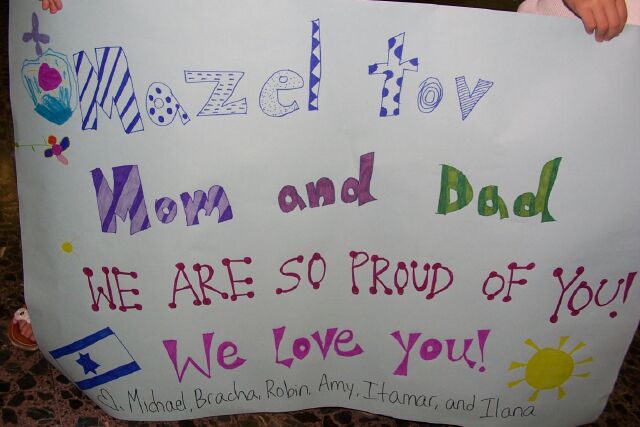 Mazel tov
Mom and Dad
WE ARE SO PROUD OF YOU!
We Love You!
♡, Michael, Bracha, Robin, Amy, Itamar, and Ilana